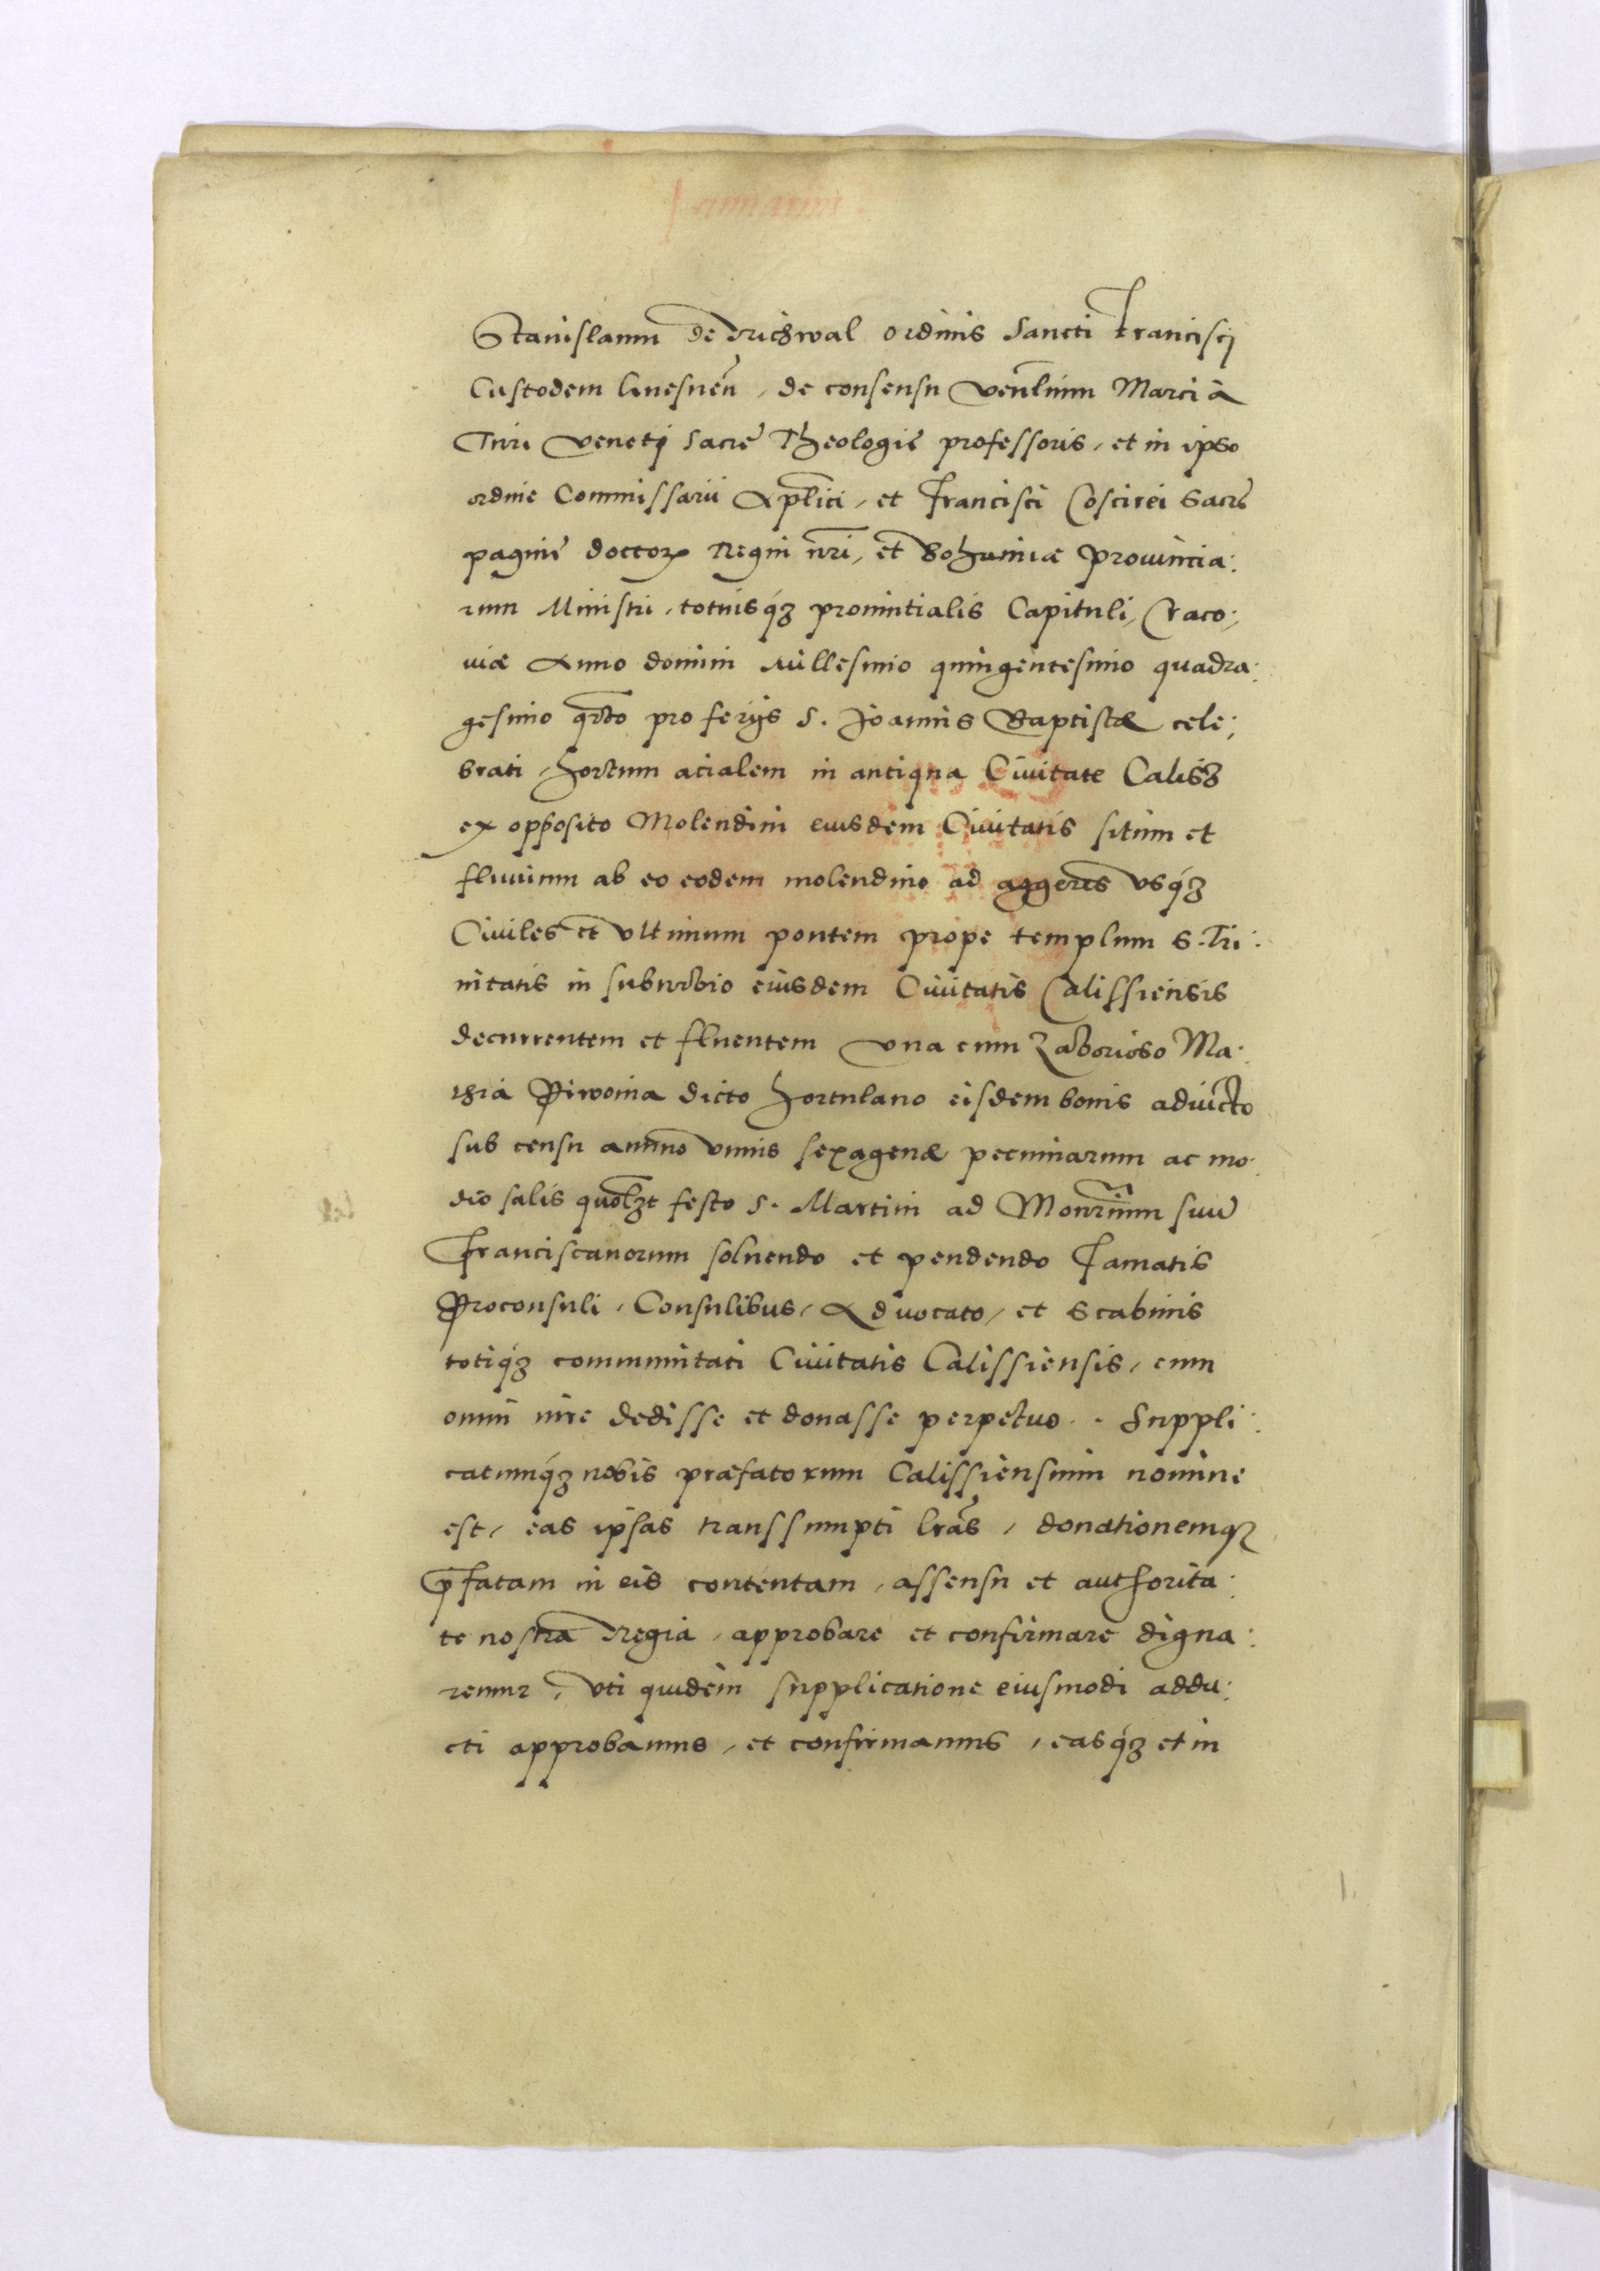 Stanislaum de Richwal ordinis Sancti Francisci
Custodem Gnesneñ, de consensu Venlium Marci à
Turi Veneti Sacrę Theologię professoris, et in ipso
ordine Commissarii Aplici, et Francisci Coscirei Sacrę
paginę doctor Regni nri, et Bohemiæ Prouincia:
rum Ministri, totiusq́ prouintialis Capituli, Craco:
uiæ Anno domini Millesimo quingentesimo quadra:
gesimo qrto pro ferijs S. Joannis Baptistæ cele:
brati, hortum acialem in antiqua Ciuitate Calisz
ex opposito Molendini eiusdem Ciuitatis situm et
fluuium ab eo eodem molendino ad aggeres vsq́
Ciuiles et vltimum pontem prope templum S. Tri:
nitatis in suburbio eiusdem Ciuitatis Calissiensis
decurrentem et fluentem vna cum Laborioso Ma:
thia Piwonia dicto hortulano eisdem bonis adiucto
sub censu annuo vnius sexagenæ pecuniarum ac mo:
dio salis quolzt festo S. Martini ad Monrium suũ
Franciscanorum soluendo et pendendo Famatis
Proconsuli, Consulibus, Aduocato, et Scabinis
totiq́ communitati Ciuitatis Calissiensis, cum
omni iure dedisse et donasse perpetuo. Suppli:
catumq́ nobis præfatorum Calissiensium nomine
est, eas ipsas transsumpti lras, donationemq
pfatam in eis contentam, assensu et authorita:
te nostra Regia, approbare et confirmare digna:
remur, vti quidem supplicatione eiusmodi addu:
cti approbamus, et confirmamus, easq́ et in